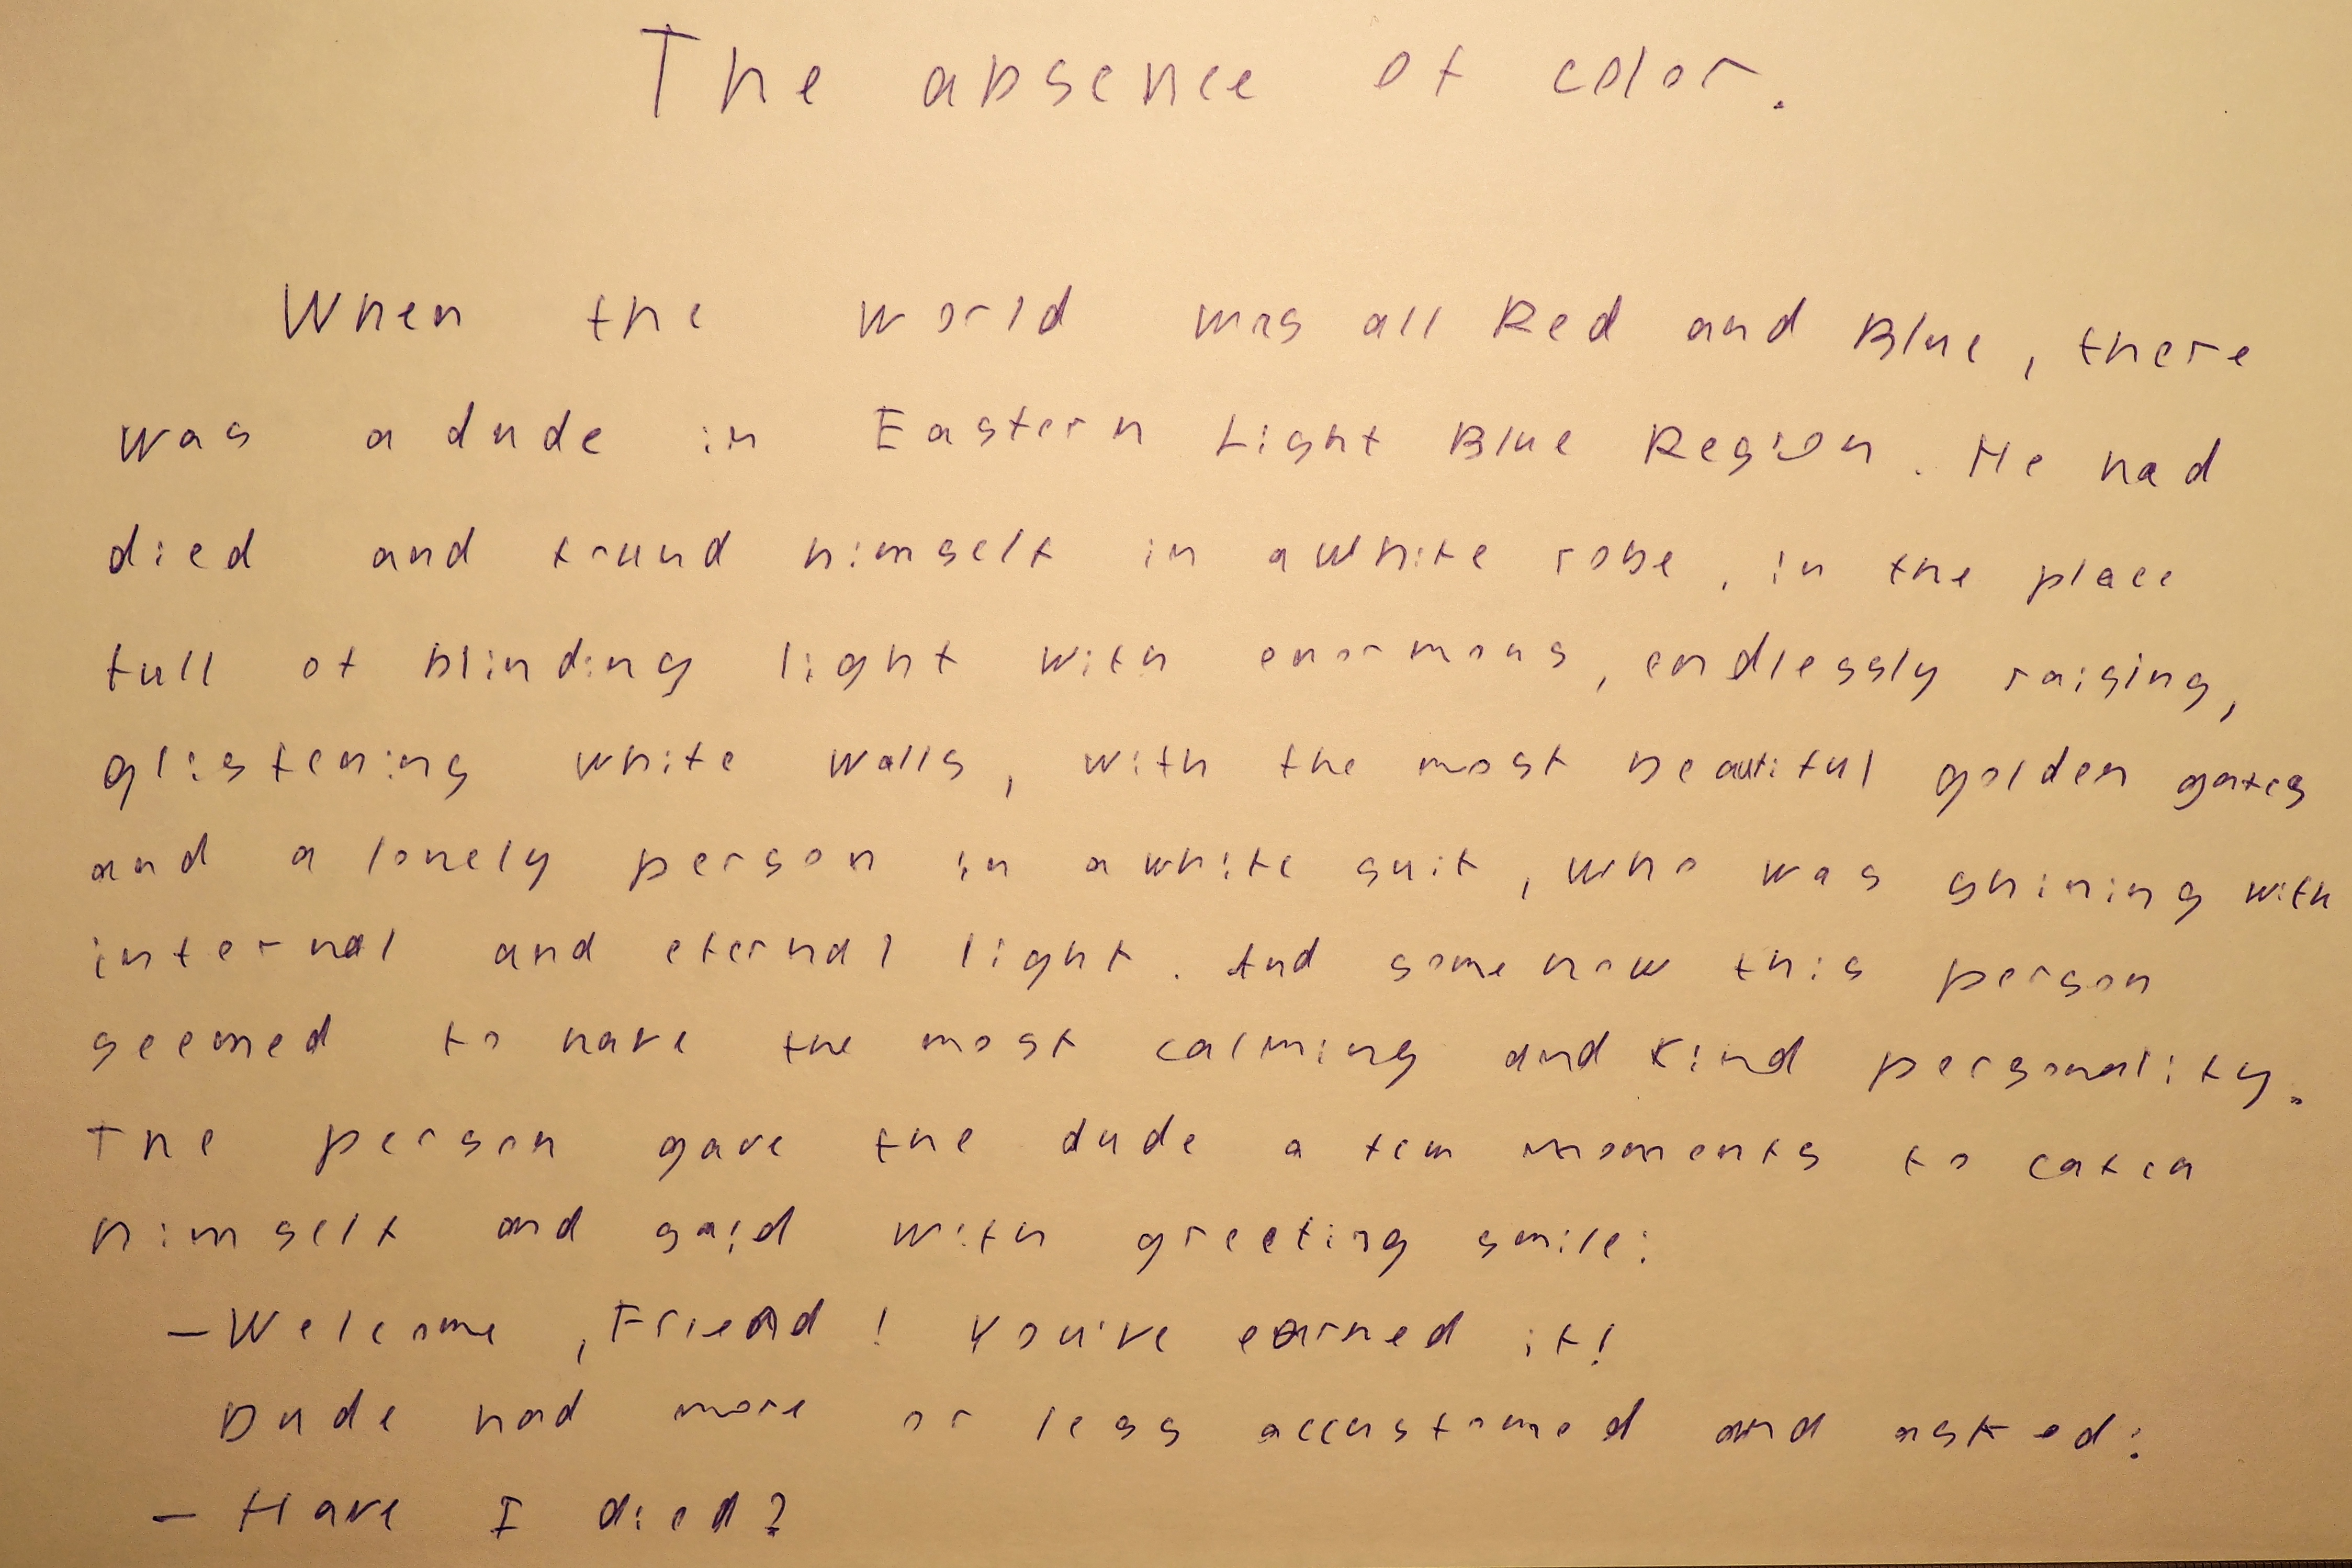 The absence of color.
When the world was all Red and Blue, there
was a dude in Eastern Light Blue Region. He had
died and found himself in a white robe, in the place
full of blinding light with enormous, endlessly raising,
glistening white walls, with the most beautiful golden gates
and a lonely person in a white suit, who was shining with
internal and eternal light. And somehow this person
seemed to have the most calming and kind personality.
The person gave the dude a few moments to catch
himself and said with greeting smile:
— Welcome, Friend! You've earned it!
Dude had more or less accustomed and asked:
— Have I died?